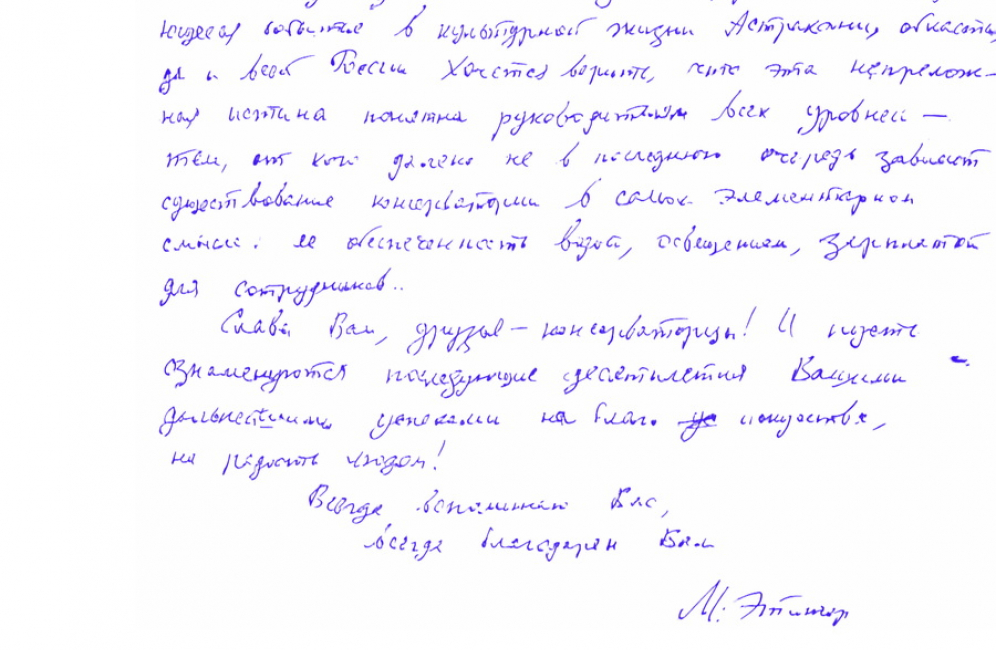 чудесах события в культурной жизни Астрахани, области,
да и всей России Хочется верить, что эта непрелож-
ная истина понятна руководителям всех уровней —
тем, от кого далеко не в последнюю очередь зависит
существование консерватории в самом элементарном
смысле: её обеспеченность водой, освещением, зарплатой
для сотрудников..
Слава Вам, друзья – консерваторцы! И пусть
ознаменуются последующие десятилетия Вашими
дальнейшими успехами на благо искусства,
на радость людям!
Всегда вспоминаю Вас,
всегда благодарен Вам
М. Этингер